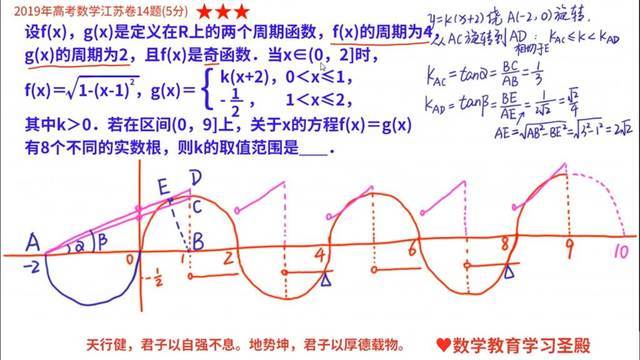 2019年高考数学江苏卷14题(5分) ★★★
设f(x)，g(x)是定义在R上的两个周期函数，f(x)的周期为4，
g(x)的周期为2，且f(x)是奇函数．当x∈(0，2]时，
f(x)=√1-(x-1)²，g(x)= { k(x+2)，0<x≤1，
-1/2，1<x≤2，
其中k>0．若在区间(0，9]上，关于x的方程f(x)＝g(x)
有8个不同的实数根，则k的取值范围是___．
y=k(x+2) 绕 A(-2,0) 旋转.
从AC旋转到AD: K_AC ≤ k < K_AD
相切于E
K_AC = tanα = BC/AB = 1/3
K_AD = tanβ = BE/AE = 1/2√2 = √2/4
AE = √AB²-BE² = √3²-1² = 2√2
E D
C
A α β B
-2 0 1 2 4 6 8 9 10
-1/2
天行健，君子以自强不息。地势坤，君子以厚德载物。
♥数学教育学习圣殿